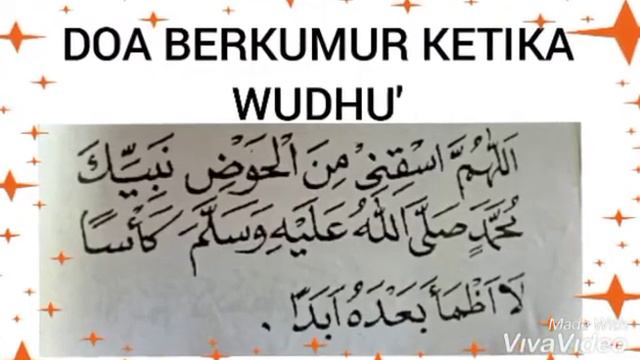 DOA BERKUMUR KETIKA
WUDHU'
اَللّٰهُمَّ اسْقِنِيْ مِنَ الْحَوْضِ نَبِيِّكَ
مُحَمَّدٍ صَلَّى اللهُ عَلَيْهِ وَسَلَّمَ كَأْسًا
لَا اَظْمَأُ بَعْدَهُ اَبَدًا .
Made With
VivaVideo